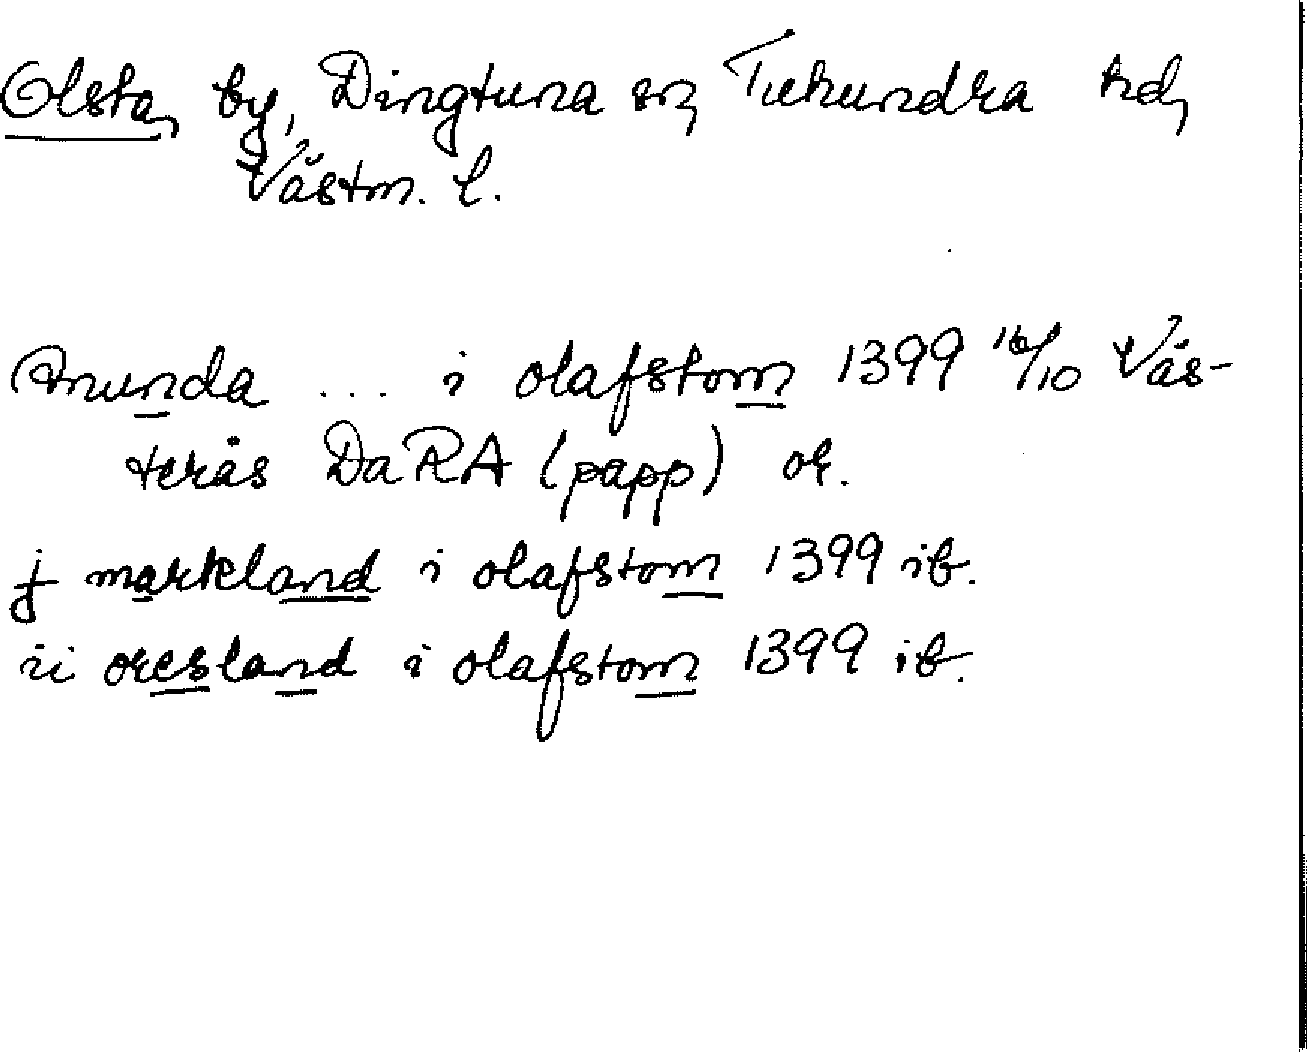 Olsta, by, Dingtuna sn, Tuhundra hd,
Västm. l.
Amunda ... i olafstom 1399 16/10 Väs-
terås DaRA (papp) or.
j markland i olafstom 1399 ib.
ii oresland i olafstom 1399 ib.